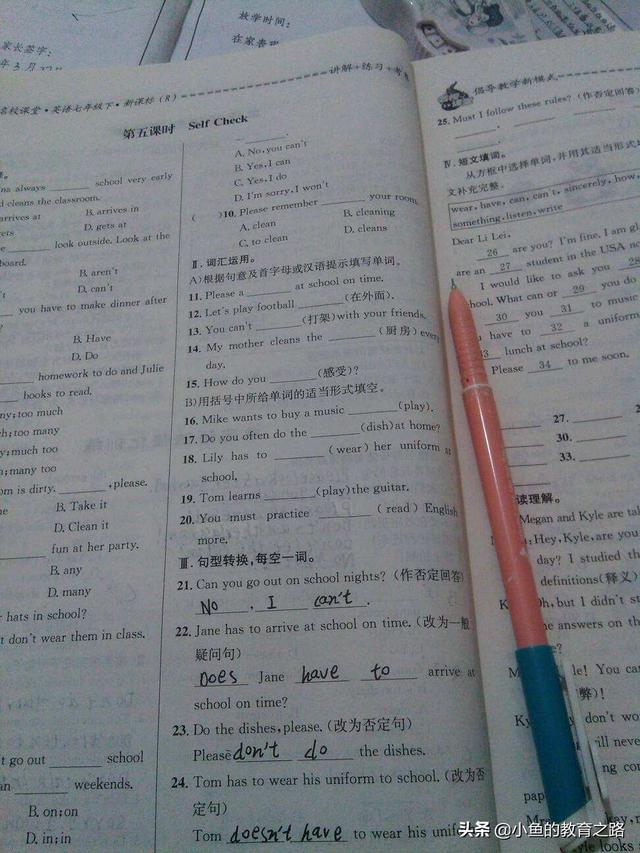 家长签字:
放学时间:
名校课堂·英语七年级下·新课标(R)
讲解+练习+考
第五课时 Self Check
always ______ school very early
d cleans the classroom.
arrives at B. arrives in
gets at D. gets
______ look outside. Look at the
board.
B. aren't
D. can't
______ you have to make dinner after
B. Have
D. Do
______ homework to do and Julie
______ books to read.
ny;too much
ch;too many
y;much too
;many too
om is dirty. ______,please.
B. Take it
D. Clean it
______ fun at her party.
B. any
D. many
hats in school?
t don't wear them in class.
t go out ______ school
an ______ weekends.
B. on;on
D. in;in
______.
A. No, you can't
B. Yes, I can
C. Yes, I do
D. I'm sorry, I won't
( )10. Please remember ______ your room.
A. clean B. cleaning
C. to clean D. cleans
Ⅱ. 词汇运用。
A)根据句意及首字母或汉语提示填写单词。
11. Please a ______ at school on time.
12. Let's play football ______(在外面).
13. You can't ______(打架)with your friends.
14. My mother cleans the ______(厨房) every
day.
15. How do you ______(感受)?
B)用括号中所给单词的适当形式填空。
16. Mike wants to buy a music ______(play).
17. Do you often do the ______(dish)at home?
18. Lily has to ______(wear) her uniform at
school.
19. Tom learns ______(play)the guitar.
20. You must practice ______(read) English
more.
Ⅲ. 句型转换,每空一词。
21. Can you go out on school nights? (作否定回答)
No, I can't.
22. Jane has to arrive at school on time. (改为一般
疑问句)
Does Jane have to arrive at
school on time?
23. Do the dishes, please. (改为否定句)
Please don't do the dishes.
24. Tom has to wear his uniform to school. (改为否
定句)
Tom doesn't have to wear his unifor
倡导教学新模式
25. Must I follow these rules? (作否定回答)
Ⅳ. 短文填词。
从方框中选择单词,并用其适当形式
文补充完整。
wear, have, can, can't, sincerely, how,
something, listen, write
Dear Li Lei,
26 are you? I'm fine. I am gl
are an 27 student in the USA no
I would like to ask you 28
chool. What can or 29 you do
30 you 31 to music
u have to 32 a uniform
33 lunch at school?
Please 34 to me soon.
27.
30.
33.
读理解。
Megan and Kyle are tal
:Hey, Kyle, are you
day? I studied th
definitions(释义)
Oh, but I didn't st
e answers on the
le! You can
弊)!
don't wo
ill never
ng con
pap
头条 @小鱼的教育之路
looks